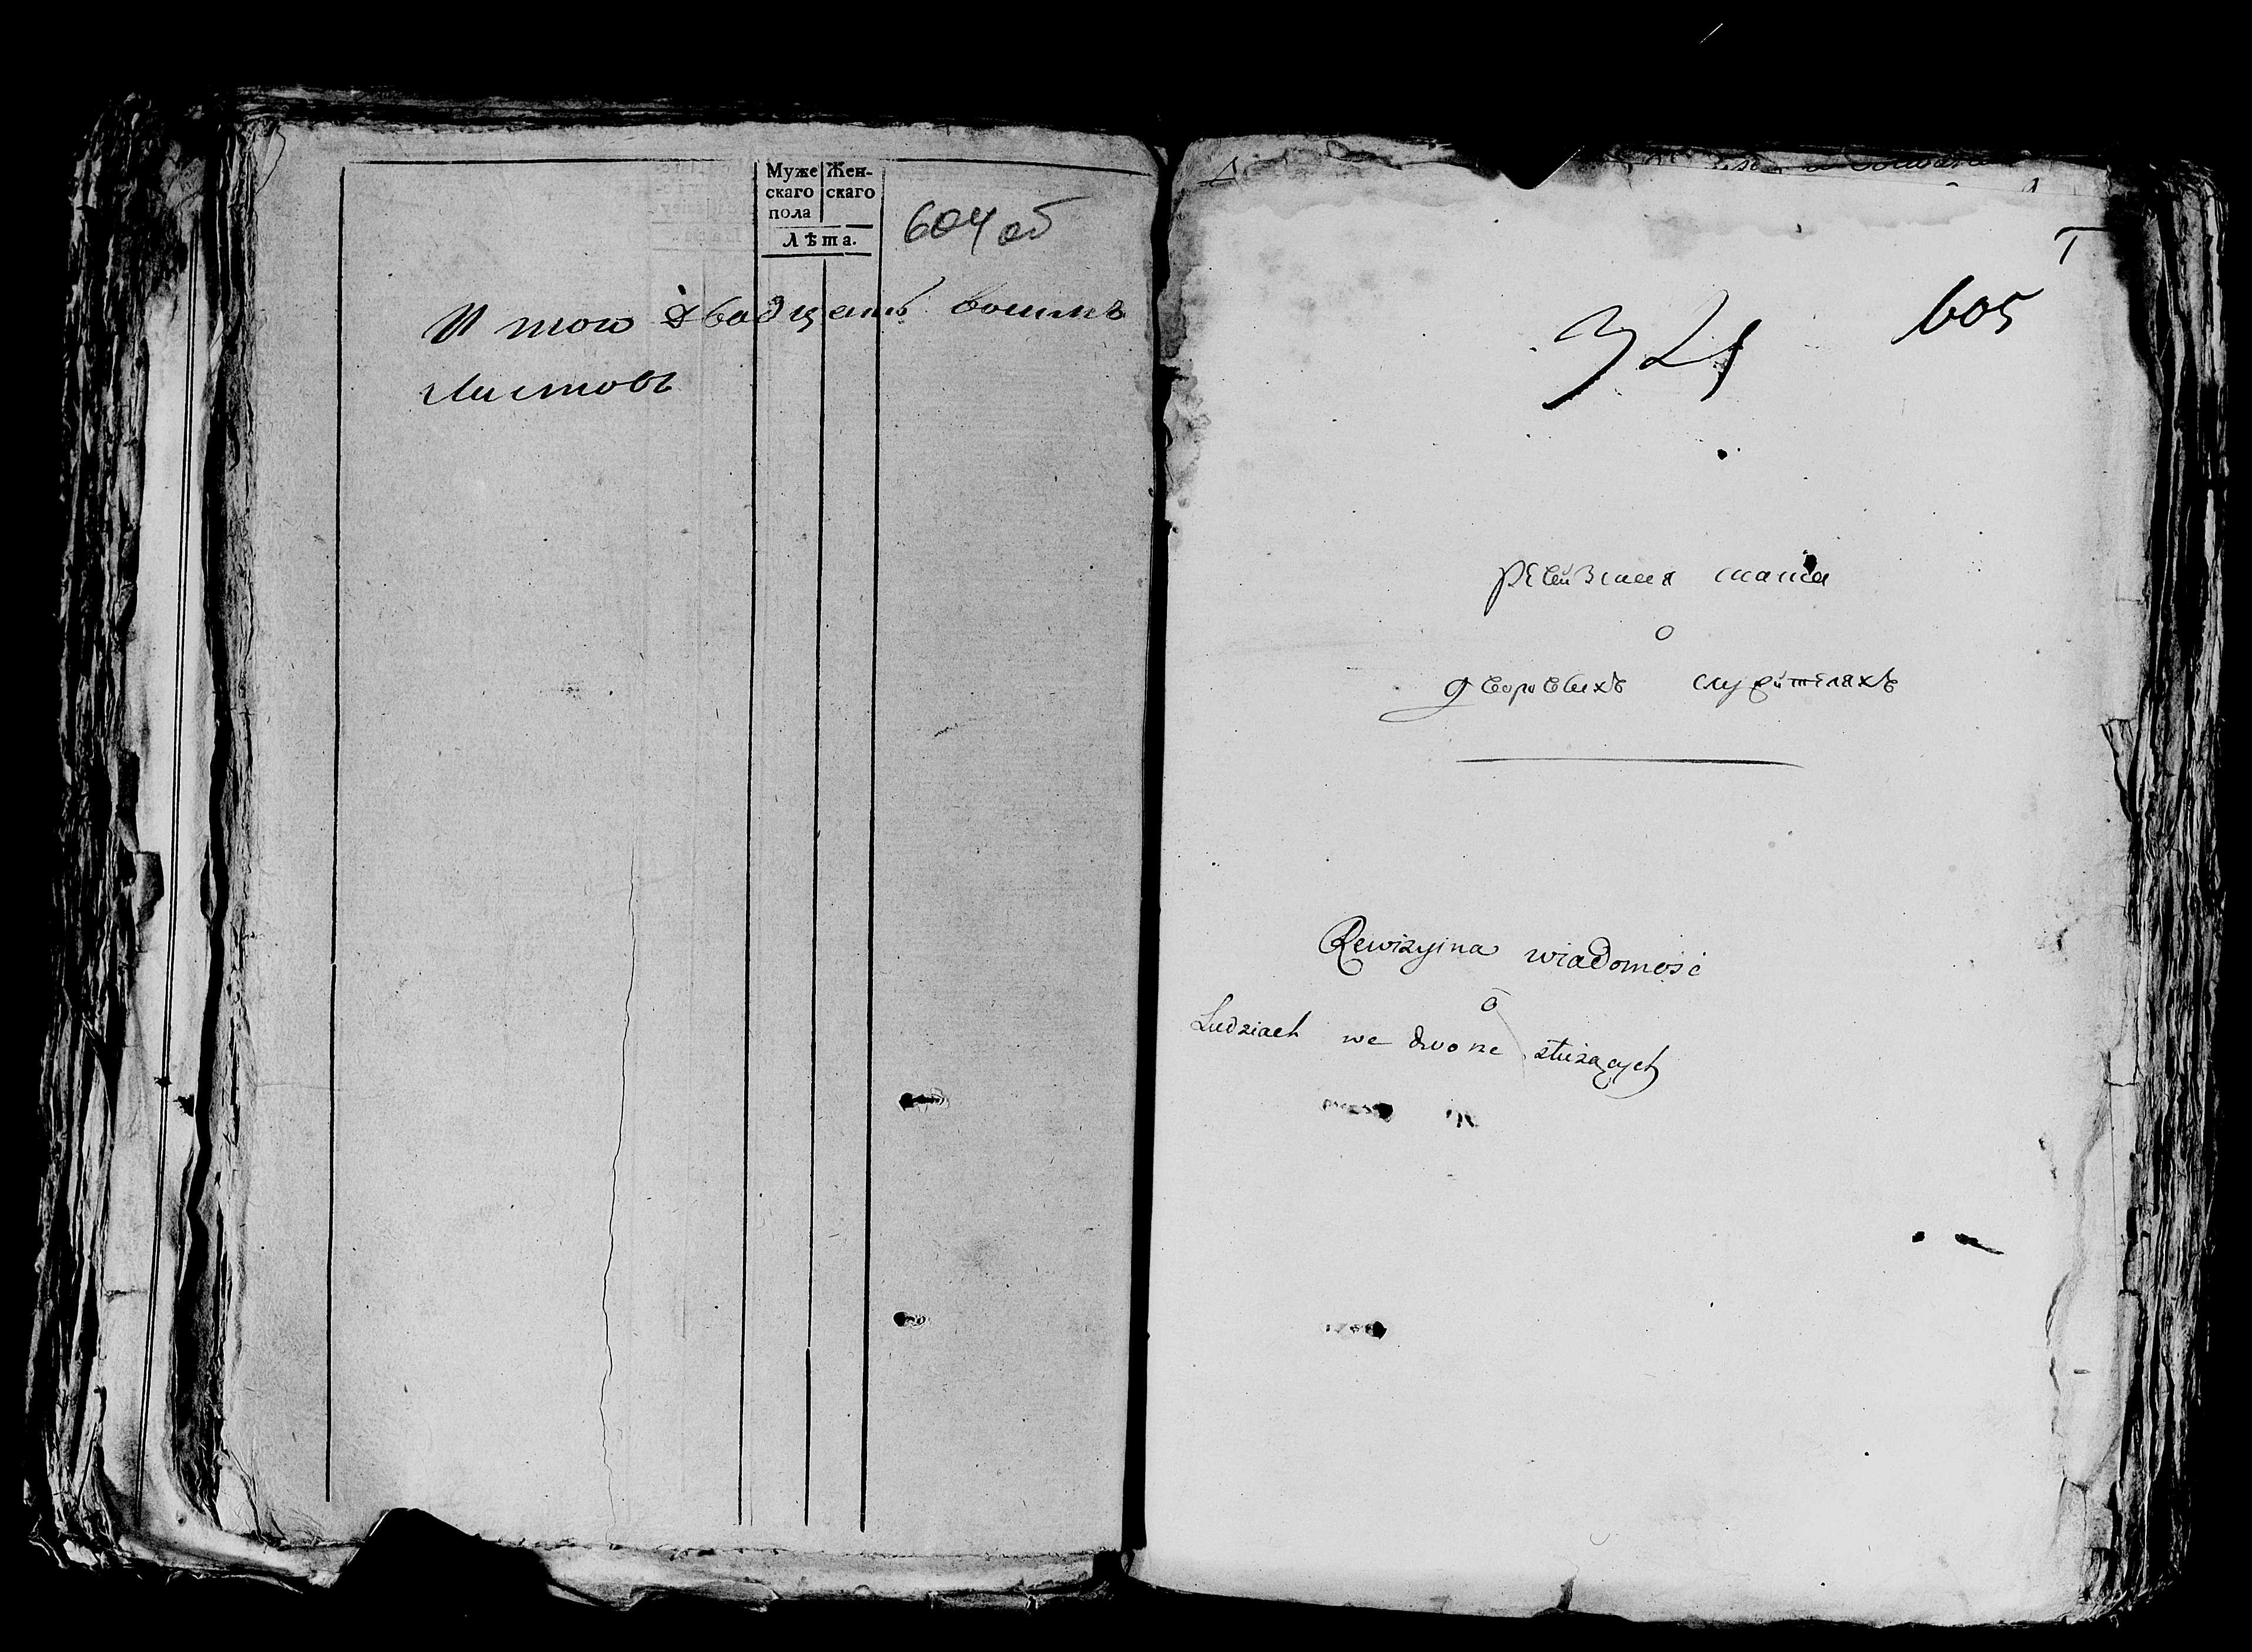 Муже Жен-
скаго скаго
пола
Лѣта.
604 об
И того двадцать восимъ
Листовъ
605
321
ревизная скаска
о
дворовыхъ служителяхъ
Rewizyina wiadomość
o
Ludziach we dworze służących